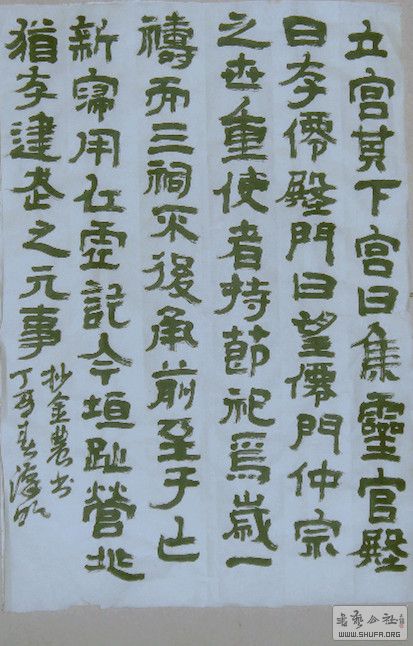 立宫其下宫曰集靈宫殿
曰存僊殿門曰望僊門仲宗
之世重使者持節祀焉歲一
禱而三祠不後承前至于亡
新寖用丘虚記今垣趾營兆
猶存建武之元事
抄金農书
丁亥春
书艺公社
WWW.SHUFA.ORG